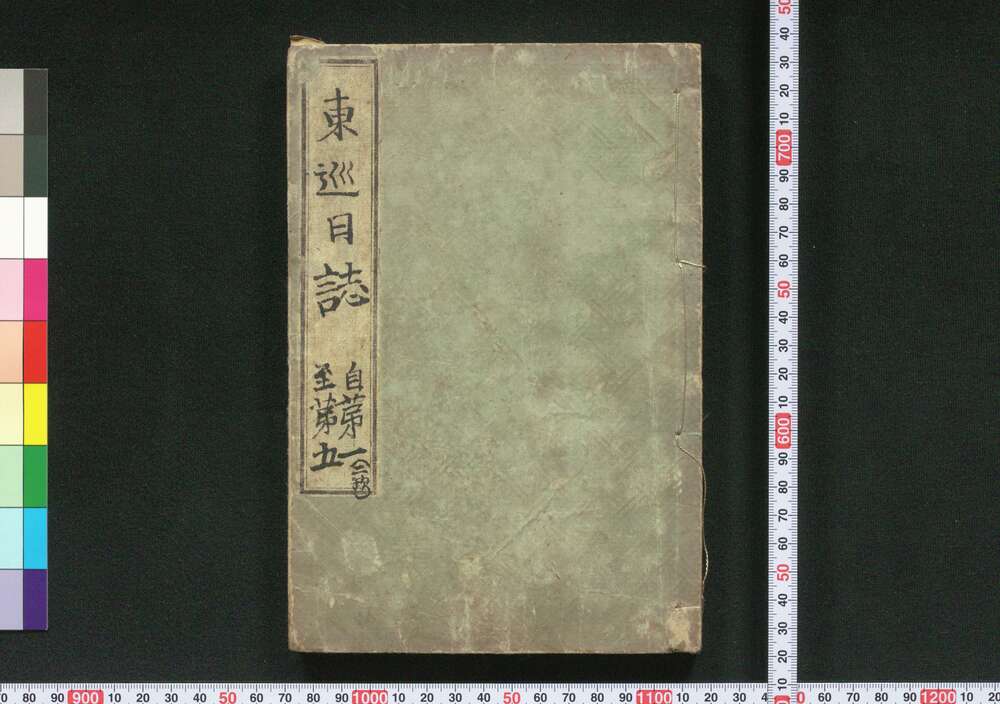 東巡日誌
自苐一
至苐五
50 40 30 20 10 700 90 80 70 60 50 40 30 20 10 600 90 80 70 60 50 40 30 20 10
80 90 900 10 20 30 40 50 60 70 80 90 1000 10 20 30 40 50 60 70 80 90 1100 10 20 30
60 70 80 90 1200 10